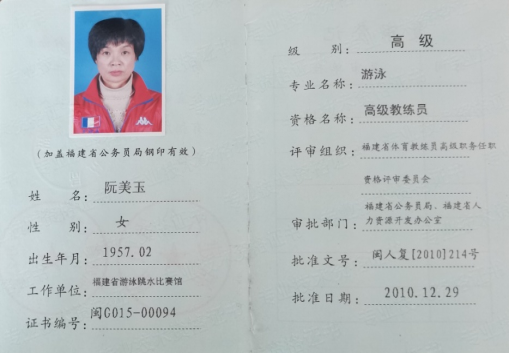 (加盖福建省公务员局钢印有效)
姓 名: 阮美玉
性 别: 女
出生年月: 1957.02
工作单位: 福建省游泳跳水比赛馆
证书编号: 闽G015-00094
级 别: 高 级
专业名称: 游泳
资格名称: 高级教练员
评审组织: 福建省体育教练员高级职务任职
资格评审委员会
福建省公务员局、福建省人
审批部门: 力资源开发办公室
批准文号: 闽人复[2010]214号
批准日期: 2010.12.29